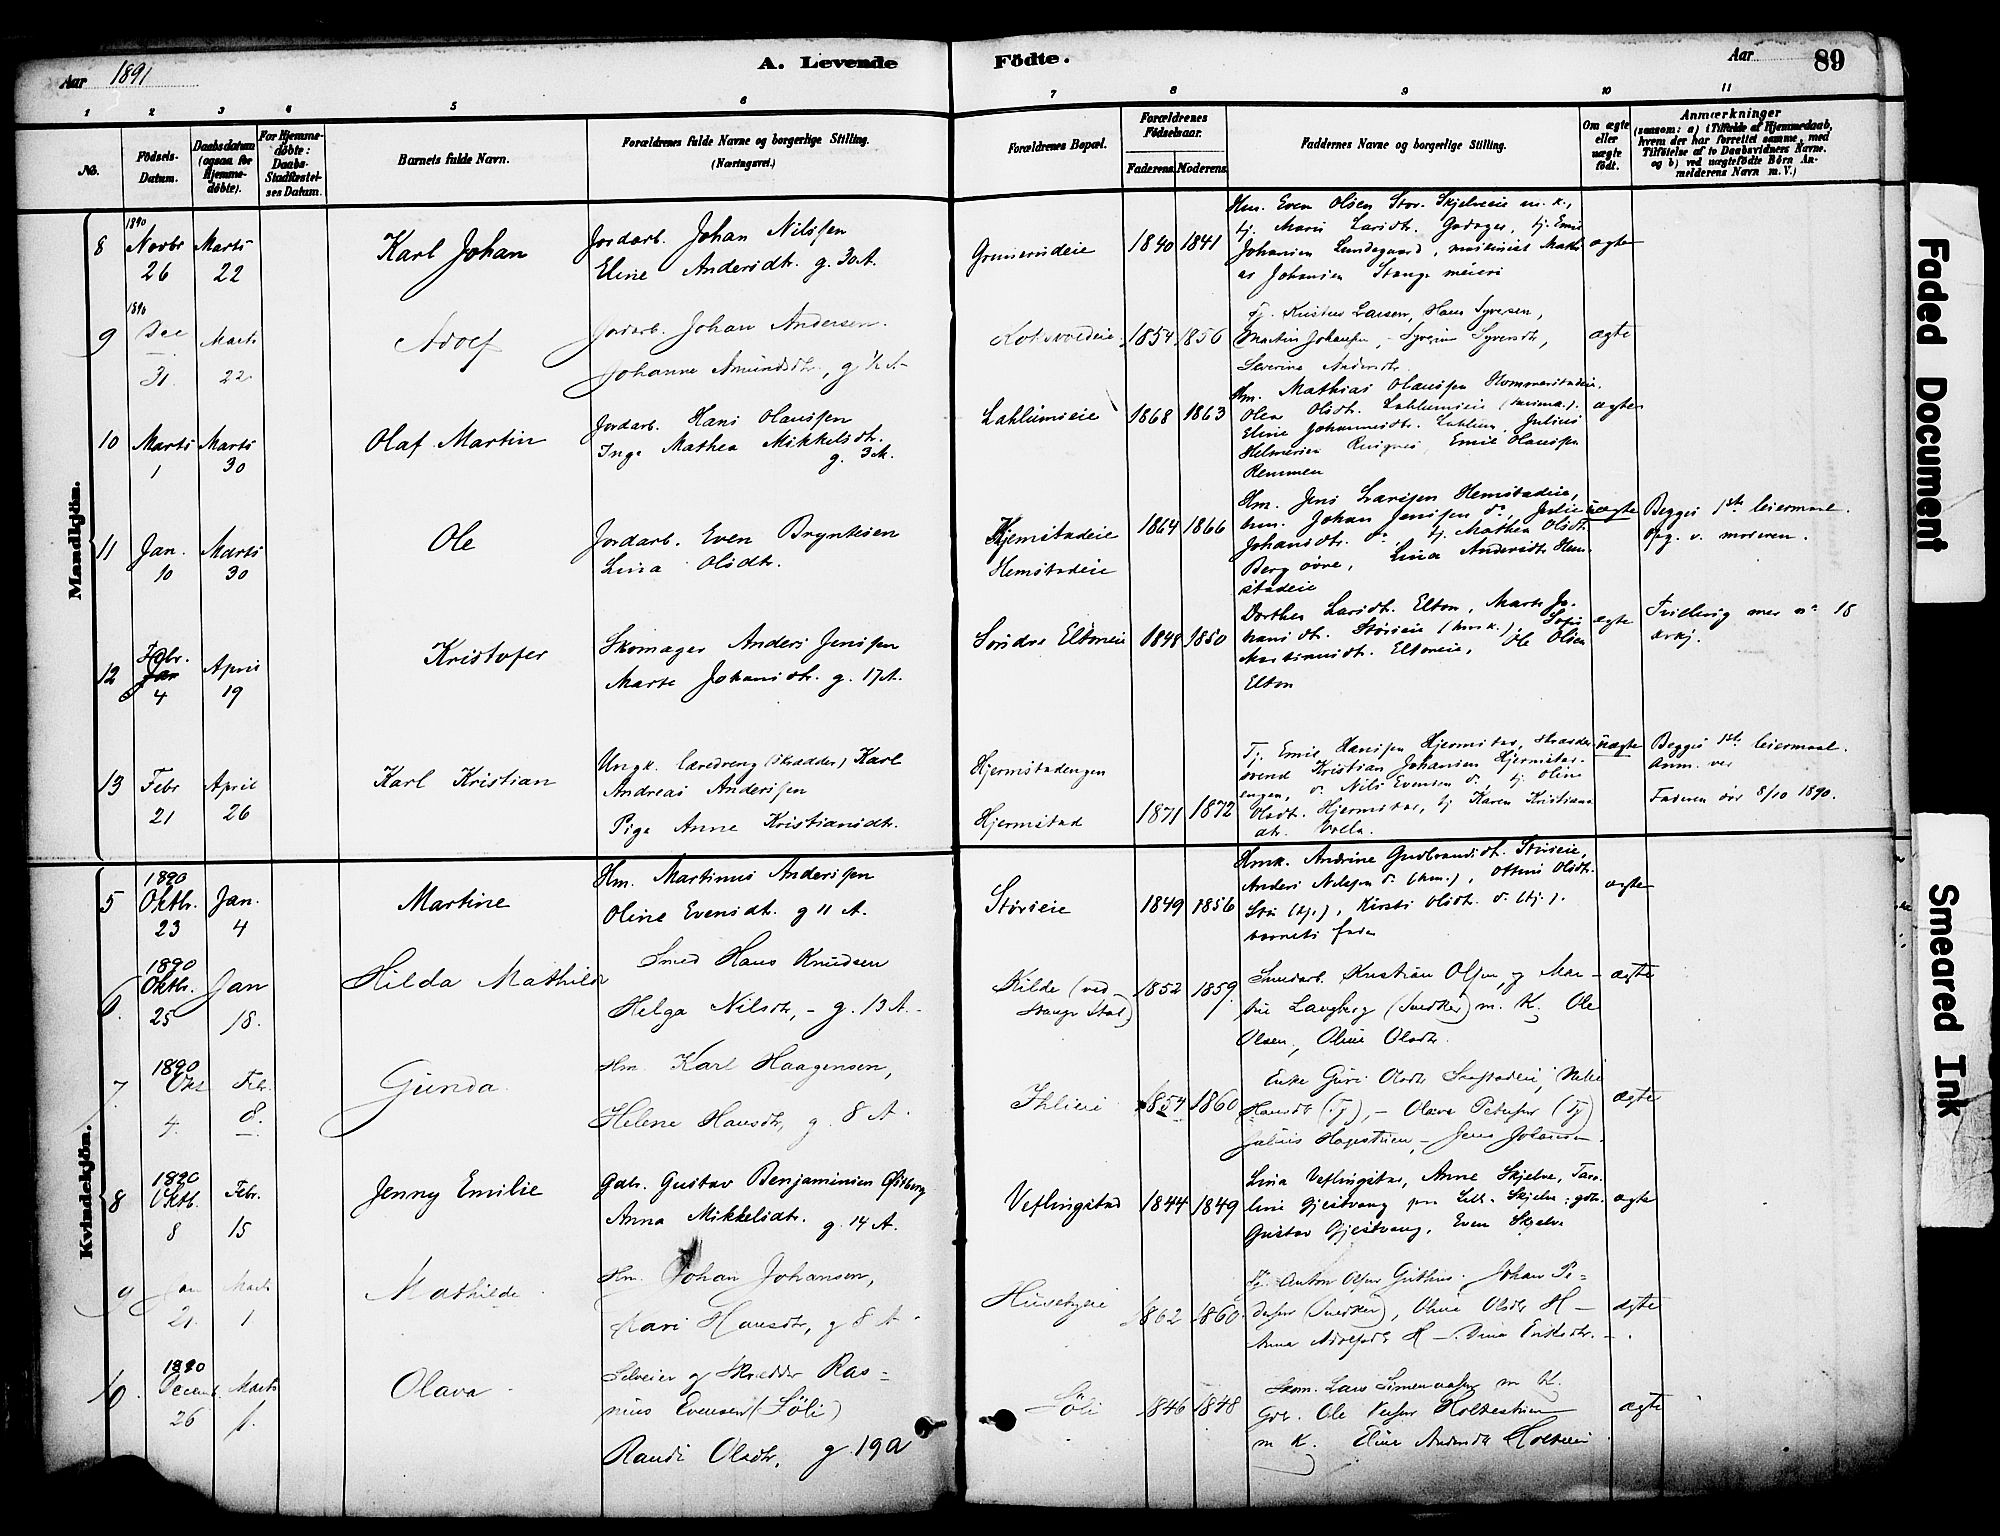 Aar 1891
A. Levende
Födte.
Aar
89
1 2 3 4 5 6 7 8 9 10 11
No.
Födsels-Datum.
Daabsdatum (ogsaa for Hjemmedöbte).
For Hjemmedöbte: Daabs-Stadfæstelses Datum.
Barnets fulde Navn.
Forældrenes fulde Navne og borgerlige Stilling.
(Næringsvei.)
Forældrenes Bopæl.
Forældrenes Födselsaar.
Faderens Moderens
Faddernes Navne og borgerlige Stilling.
Om ægte eller uægte födt.
Anmærkninger
(saasom: a) i Tilfælde af Hjemmedaab, hvem der har forrettet samme, med Tilföielse af to Daabsvidners Navne, og b) ved uægtefödte Börn Anmelderens Navn m. V.)
Mandkjön.
8
1890
Novbr 26
Marts 22
Karl Johan
Jordarb. Johan Nilssen
Eline Andersdt. g. 30 A.
Grunerudeie
1840 1841
Hm. Even Olsen Stor. Skjelveie m. k.,
tj. Mari Larsdt. Godager, tj. Emil
Johansen Lundsgaard, maskinist
Johansen Stange meieri
ægte
9
1890
Dec 31.
Marts 22.
Adolf
Jordarb. Johan Andersen.
Johanne Amundsdtr, g
1854 1856
Tj. Kristian Larsen, Hans Syversen,
Martin Johansen, - Syverine Syversdtr,
Severine Andersdtr.
ægte
10
Marts 1
Marts 30
Olaf Martin
Jordarb. Hans Olaussen
Inge Mathea Mikkelsdt.
g. 3 A.
Lahlumseie
1868 1863
Hm. Mathias Olaussen Hommerstadeie.
Olea Olsdt. Lahlumseie
Eline Johannesdt. Lahlum, Julius
Helmersen Ringnes, Emil Olaussen
Remmen
ægte
11
Jan. 10
Marts 30
Ole
Jordarb. Even Bryntesen
Lina Olsdt.
Hjemstadeie
Hemstadeie
1864 1866
Hm. Jens Larssen Hemstadeie,
hm. Johan Jenssen do, Julie
Johansdt. do, tj. Mathea Olsdt.
Berg øvre, Lina Andersdt. Hemstadeie
uægte
Begges 1ste leiermaal.
Opg. v. moderen.
12
Febr. 4
April 19
Kristofer
Skomager Anders Jenssen
Marte Johansdt. g. 17 A.
Søndre Eltoneie
1848 1850
Dorthea Larsdt. Elton, Marte Johansdt.
Størseie (hmk.), Sofie
Martinusdt. Eltoneie, Ole Olsen
Elton
ægte
Tvilling med no 15
kvkj.
13
Febr 21
April 26
Karl Kristian
Ungk. læredreng (skrædder) Karl
Andreas Anderssen
Pige Anne Kristiansdt.
Hjermstadengen
Hjermstad
1871 1872
Tj. Emil Hanssen Hjermstad, skræddersvend
Kristian Johansen Hjermstadengen,
do Nils Evensen do, tj. Oline
Olsdt. Hjermstad, tj Karen Kristiansdt.
Volla.
uægte
Begges 1ste leiermaal.
Anm. ved
Faderen død 8/10 1890.
Kvindekjön.
5
1890
Oktbr. 23
Jan. 4
Martine
Hm. Martinus Anderssen
Oline Evensdt. g 11 A.
Størseie
1849 1856
Hmk. Andrine Gudbrandsdt. Størseie,
Anders Nilssen do (hm.), Ottine Olsdt.
Stør (tj.), Kirsti Olsdt. do (tj.).
barnets fader
ægte
6
1890
Oktbr. 25
Jan 18.
Hilda Mathilde
Smed Hans Knudsen
Helga Nilsdtr, - g. 13 A. -
Kilde (ved Stange Stat)
1852 1859
Snedkerarb. Kristian Olsen, og
Langberg (Snedker) m. K. Ole
Olsen, Oline Olsdtr.
ægte
7
1890
Okt 4.
Febr. 8.
Gunda.
Hm. Karl Haagensen,
Helene Hansdtr, g. 8 A.
Ihlseie
1854 1860
Enke Guri Olsdtr
Hansdtr (Tj), - Olava Pedersen (Tj)
Julius, - Jens Johansen.
ægte
8
1890
Oktb. 8
Febr. 15
Jenny Emilie
Gdbr. Gustav Benjaminsen Østberg
Anna Mikkelsdt. g. 14 A.
Veflingstad
1844 1849
Lina Veflingstad, Anne Skjelve,
Gjestvang, Skjelve, gdbr.
Gustav Gjestvang, Even Skjelve
ægte
9
Jan 21.
Marts 1
Mathilde
Hm. Johan Johansen,
Kari Hansdtr, g 8 A.
Husebyeie
1862 1860.
Tj. Anton Olsen. Johan Pedersen
(Snedker), Oline Olsdtr H -
Anna Adolfsdtr H -. Dina Eriksdtr. -
ægte
10
1890
Decemb. 26
Marts 1.
Olava
Selveier og Skrædder Rasmus
Evensen (Løli)
Randi Olsdtr, g. 19 a
Løli
1846 1848
Skom. Lars Simensen m K.
Gdb. Ole
m K. Eline Andersdtr
ægte
Faded Document
Smeared Ink